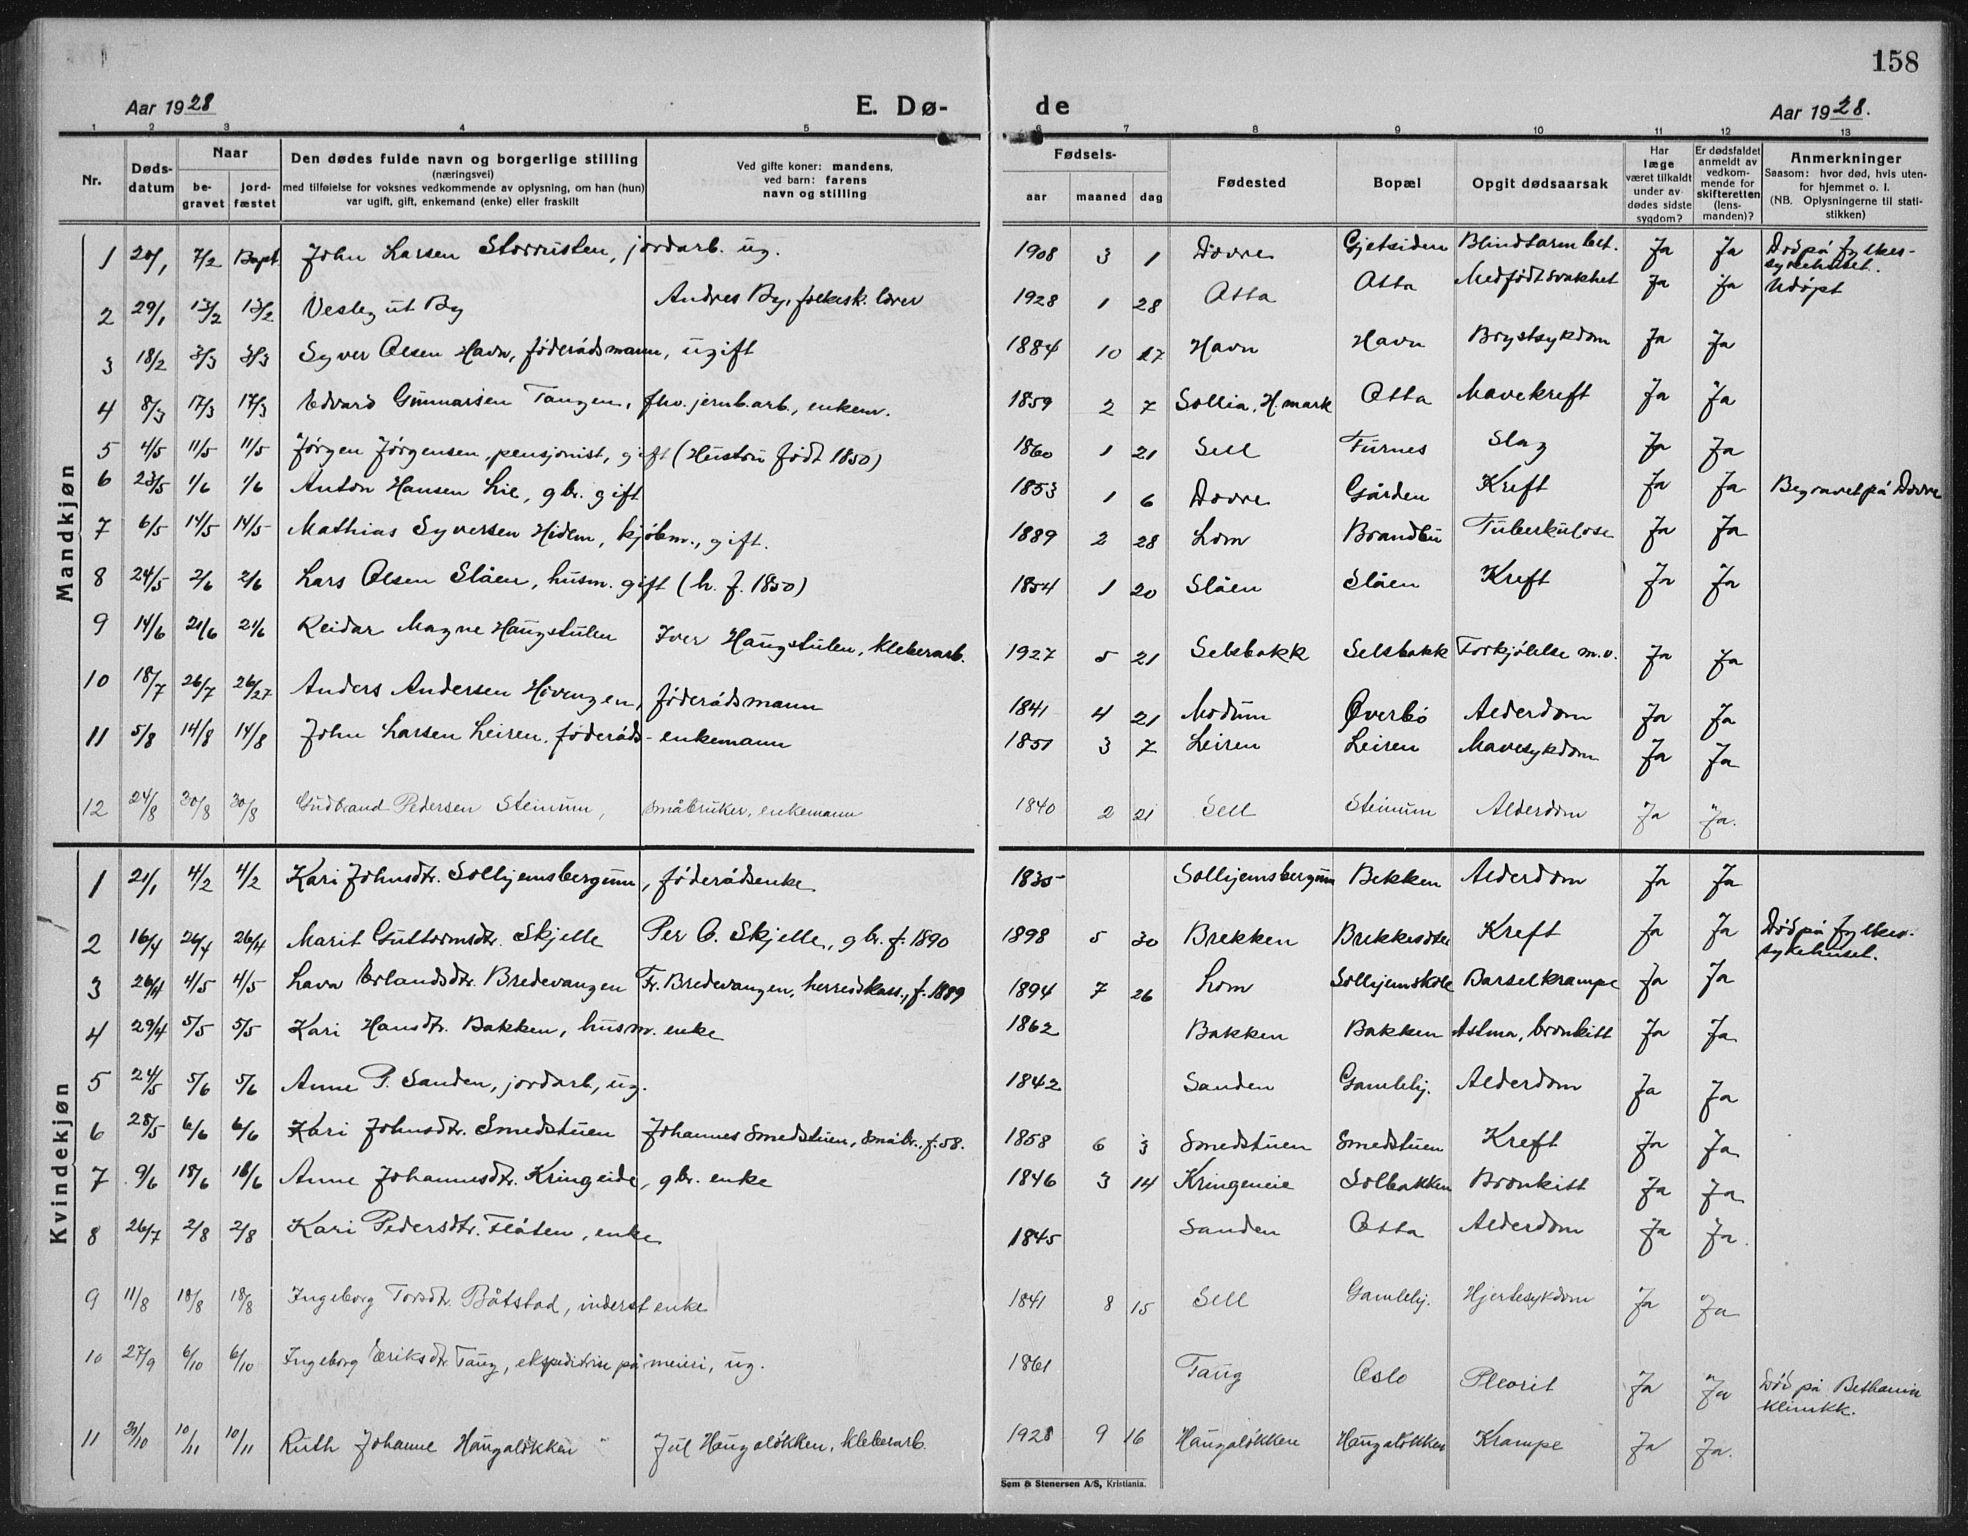 158
Aar 1928 E. Dø- de Aar 1928.
1 2 3 4 5 6 7 8 9 10 11 12 13
Nr. Døds-datum Naar be-gravet jord-fæstet Den dødes fulde navn og borgerlige stilling (næringsvei) med tilføielse for voksnes vedkommende av oplysning, om han (hun) var ugift, gift, enkemand (enke) eller fraskilt Ved gifte koner: mandens, ved barn: farens navn og stilling Fødsels- aar maaned dag Fødested Bopæl Opgit dødsaarsak Har læge været tilkaldt under av-dødes sidste sygdom? Er dødsfaldet anmeldt av vedkom-mende for skifteretten (lens-manden)? Anmerkninger Saasom: hvor død, hvis uten-for hjemmet o. l. (NB. Oplysningerne til stati-stikken)
Mandkjøn
1 20/1 7/2 Bapt. John Larsen Storrusten, jordarb. ug. 1908 3 1 Dovre Gjetsiden Blindtarmbet. Ja Ja Død på fylkes-
sykehuset.
2 29/1 13/2 13/2 Veslegut By Andres By, folkesk. lærer 1928 1 28 Otta Otta Medfødt svakhet Ja Ja Udøpt
3 18/2 3/3 3/3 Syver Olsen Havn, føderådsmann, ugift 1884 10 17 Havn Havn Brystsykdom Ja Ja
4 8/3 17/3 17/3 Edvard Gunnarsen Tangen, fhv. jernb.arb., enkem. 1859 2 7 Sollia, H.mark Otta Mavekreft Ja Ja
5 4/5 11/5 11/5 Jørgen Jørgensen, pensjonist, gift (Hustru født 1850) 1860 1 21 Sell Furnes Slag Ja Ja
6 23/5 1/6 1/6 Anton Hansen Lie, gbr. gift 1853 1 6 Dovre Gården Kreft Ja Ja Begravet på Dovre
7 6/5 14/5 14/5 Mathias Syversen Hidem, kjøbm., gift. 1889 2 28 Lom Brandbu Tuberkulose Ja Ja
8 24/5 2/6 2/6 Lars Olsen Slåen, husm. gift (h. f. 1850) 1854 1 20 Slåen Slåen Kreft Ja Ja
9 14/6 21/6 21/6 Reidar Magne Haugstulen Iver Haugstulen, kleberarb. 1927 5 21 Selsbakk Selsbakk Forkjølelse m.v. Ja Ja
10 18/7 26/7 26/27 Anders Andersen Høvengen, føderådsmann 1841 4 21 Modum Øverbø Alderdom Ja Ja
11 5/8 14/8 14/8 John Larsen Leiren, føderåds-enkemann 1851 3 7 Leiren Leiren Mavesykdom Ja Ja
12 24/8 30/8 30/8 Gudbrand Pedersen Steinum, småbruker, enkemann 1840 2 21 Sell Steinum Alderdom Ja Ja.
Kvindekjøn
1 21/1 4/2 4/2 Kari Johnsdtr. Solhjemsbergum, føderådsenke 1835 Solhjemsbergum Bekken Alderdom Ja Ja
2 16/4 26/4 26/4 Marit Guttormsdtr. Skjelle Per O. Skjelle, gbr. f. 1890 1898 5 30 Brekken Brekkesdtr Kreft Ja Ja Død på fylkes-
sykehuset.
3 26/4 4/5 4/5 Lava Erlandsdtr. Bredevangen Fr. Bredevangen, herredskass., f. 1889 1894 7 26 Lom Solhjemskole Barselkrampe Ja Ja
4 29/4 5/5 5/5 Kari Hansdtr. Bakken, husm. enke 1862 Bakken Bakken Astma, bronkitt Ja Ja
5 24/5 5/6 5/6 Anne P. Sanden, jordarb, ug. 1842 Sanden Gamlehj. Alderdom Ja Ja
6 28/5 6/6 6/6 Kari Johnsdtr. Smedstuen Johannes Smedstuen, småbr., f. 58. 1858 6 3 Smedstuen Smedstuen Kreft Ja Ja
7 9/6 18/6 18/6 Anne Johannesdtr. Kringeide, gbr. enke 1846 3 14 Kringeneie Solbakken Bronkitt Ja Ja
8 26/7 2/8 2/8 Kari Pedersdtr. Fløten, enke 1845 Sanden Otta Alderdom Ja Ja
9 11/8 18/8 18/8 Ingeborg Torsdtr. Båtstad, inderst enke 1841 8 15 Sell Gamlehj. Hjertesykdom Ja Ja
10 27/9 6/10 6/10 Ingeborg Eriksdtr. Taug, ekspeditrise på meieri, ug. 1861 Taug Oslo Pleurit Ja Ja Død på Bethania
klinikk.
11 31/10 10/11 10/11 Ruth Johanne Haugaløkken Jul Haugaløkken, kleberarb. 1928 9 16 Haugaløkken Haugaløkken Krampe Ja Ja.
Søm & Stenersen A/S, Kristiania.